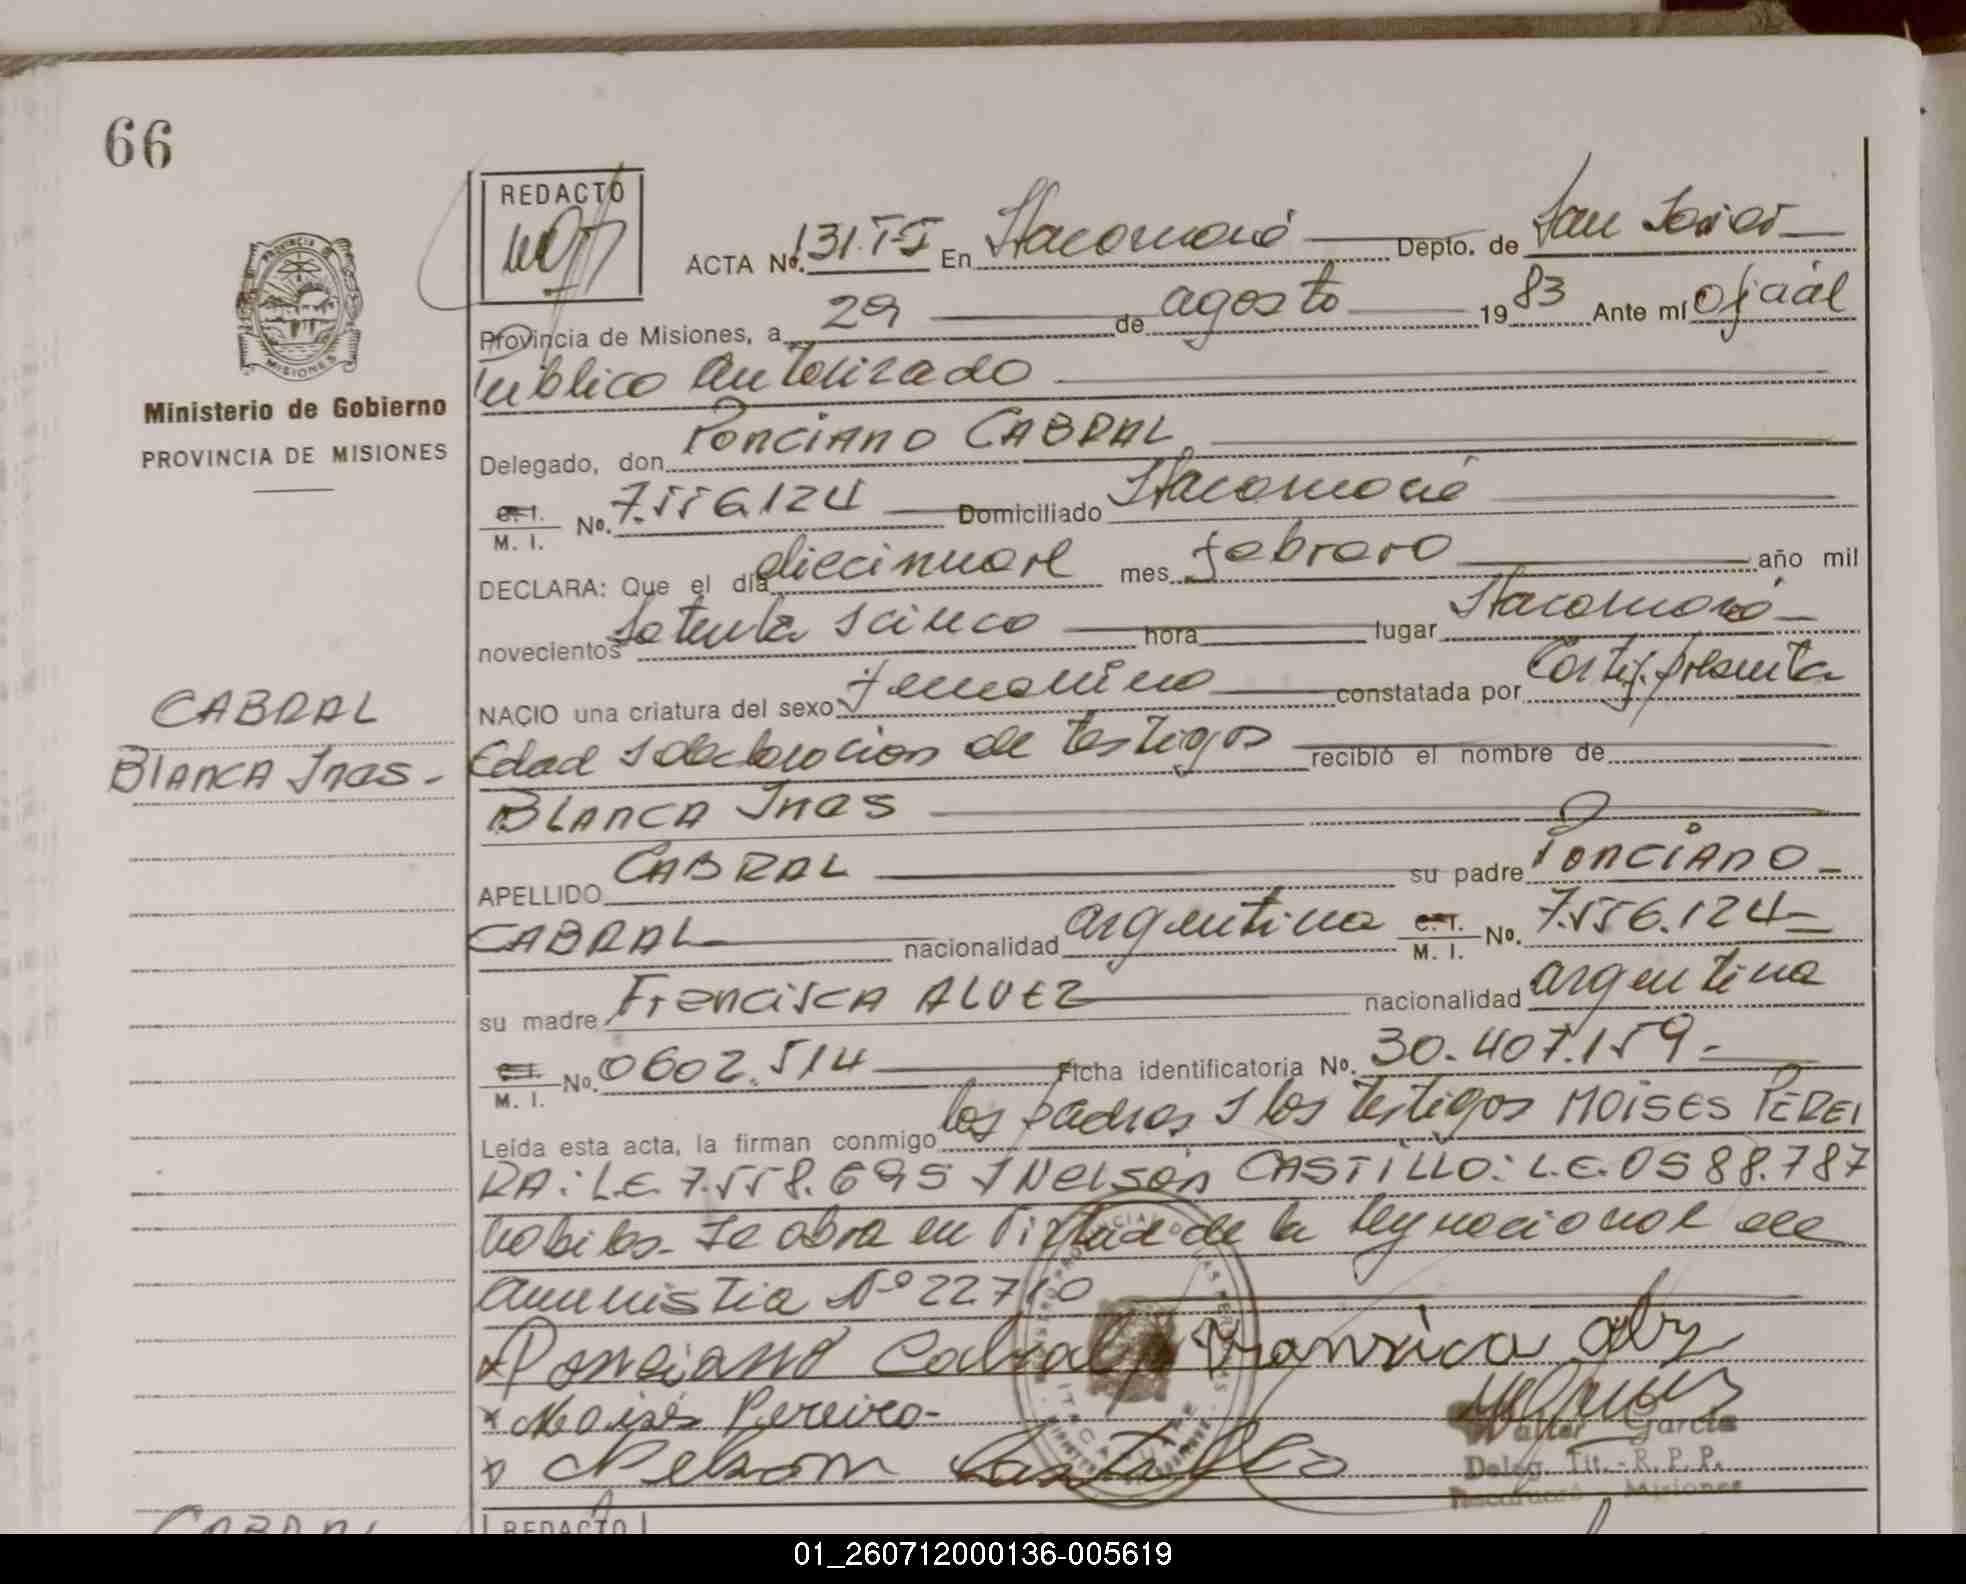 66
REDACTO
ACTA Nº. 131.TI En Itacaruaré Depto. de San Javier
Provincia de Misiones, a 29 de agosto 1983 Ante mí Oficial
Público Autorizado
Ministerio de Gobierno
PROVINCIA DE MISIONES
Delegado, don Ponciano CABRAL
C. I. M. I. No. 7.556.124 Domiciliado Itacaruaré
DECLARA: Que el día diecinueve mes febrero año mil
novecientos setenta y cinco hora lugar Itacaruaré
NACIO una criatura del sexo femenino constatada por Certif. presunta
CABRAL
Blanca Ines.-
Edad y declaracion de testigos recibió el nombre de
Blanca Ines
APELLIDO CABRAL su padre Ponciano
CABRAL nacionalidad argentina C. I. M. I. No. 7.556.124
su madre Francisca ALVEZ nacionalidad argentina
C. I. M. I. No. 0602.514 Ficha identificatoria No. 30.407.159.-
Leída esta acta, la firman conmigo los padres y los testigos MOISES PEREI
RA: L.E. 7.558.695 y Nelson CASTILLO: L.E. 0588.787
habiles. Se obra en Virtud de la ley nacional de
amnistia Nº 22710
Ponciano Cabral
Moisés Pereira-
Nelson Castillo
Walter García
Deleg. Tit. - R. P. P.
Misiones
CABRAL
REDACTO
01_260712000136-005619